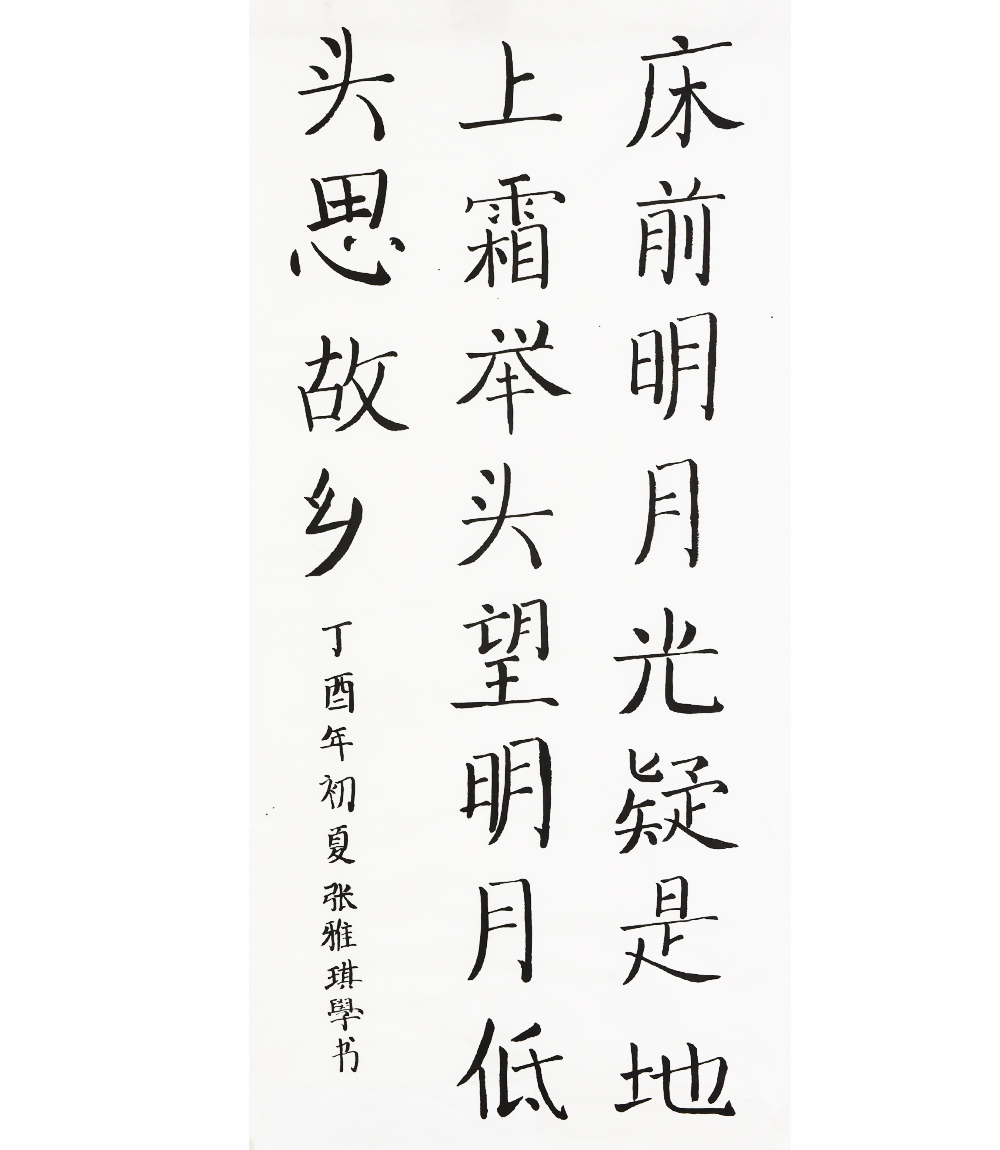 床前明月光疑是地
上霜举头望明月低
头思故乡
丁酉年初夏张雅琪學书